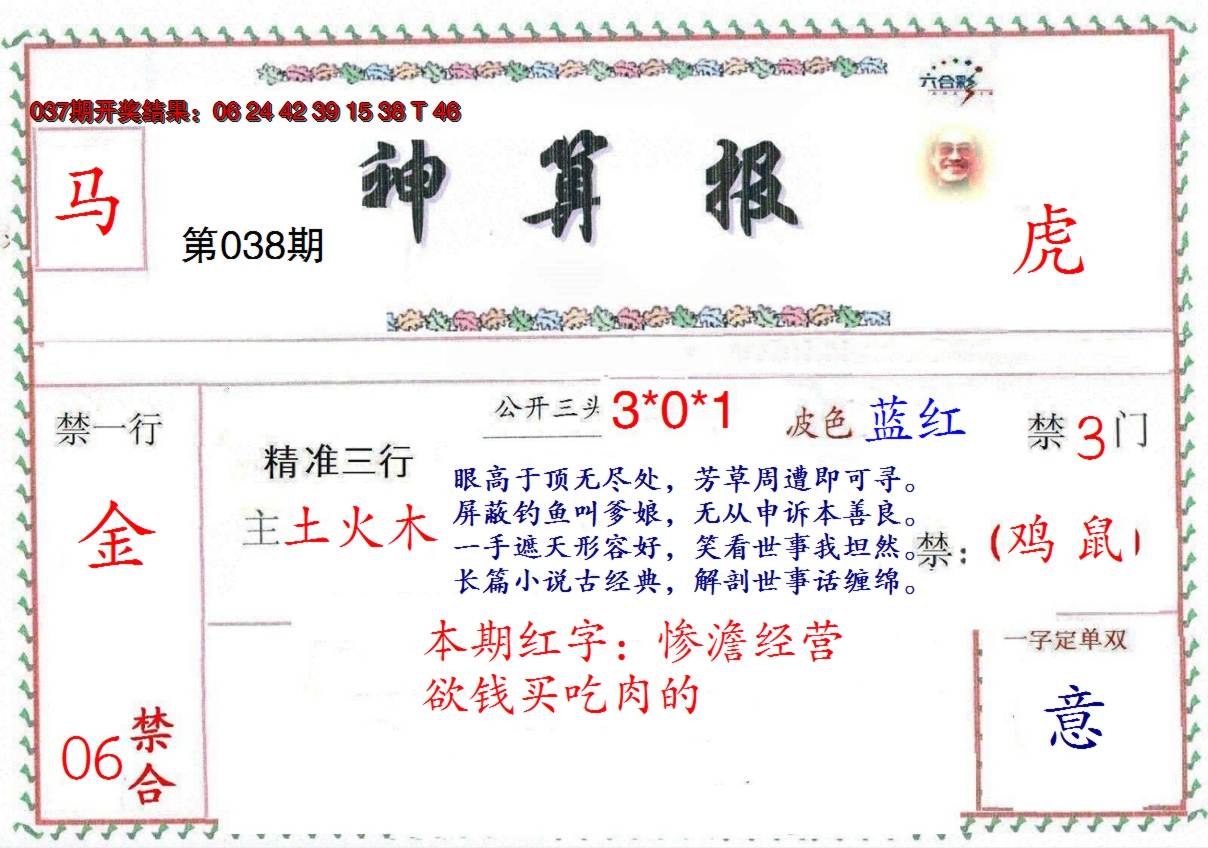 六合彩
037期开奖结果：06 24 42 39 15 38 T 46
马
神算报
第038期
虎
禁一行
金
06禁合
精准三行
主土火木
公开三头3*0*1
波色 蓝红
禁3门
眼高于顶无尽处，芳草周遭即可寻。
屏蔽钓鱼叫爹娘，无从申诉本善良。
一手遮天形容好，笑看世事我坦然。
长篇小说古经典，解剖世事话缠绵。
禁：（鸡 鼠）
本期红字：惨澹经营
欲钱买吃肉的
一字定单双
意